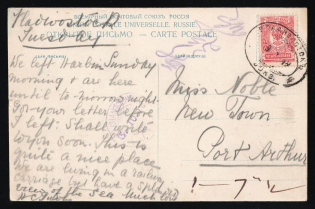 Vladivostock
Tuesday
ВСЕМІРНЫЙ ПОЧТОВЫЙ СОЮЗЪ. РОССІЯ
UNION POSTALE UNIVERSELLE RUSSIE
ОТКРЫТОЕ ПИСЬМО — CARTE POSTALE
We left Harbin Sunday
morning & are here
until to-morrow night.
Got your letter before
I left. Shall write
soon. This is
quite a nice place
We are living in a railway
carriage but have a splendid
view of the Sea. Much love
Miss Noble
New Town
Port Arthur